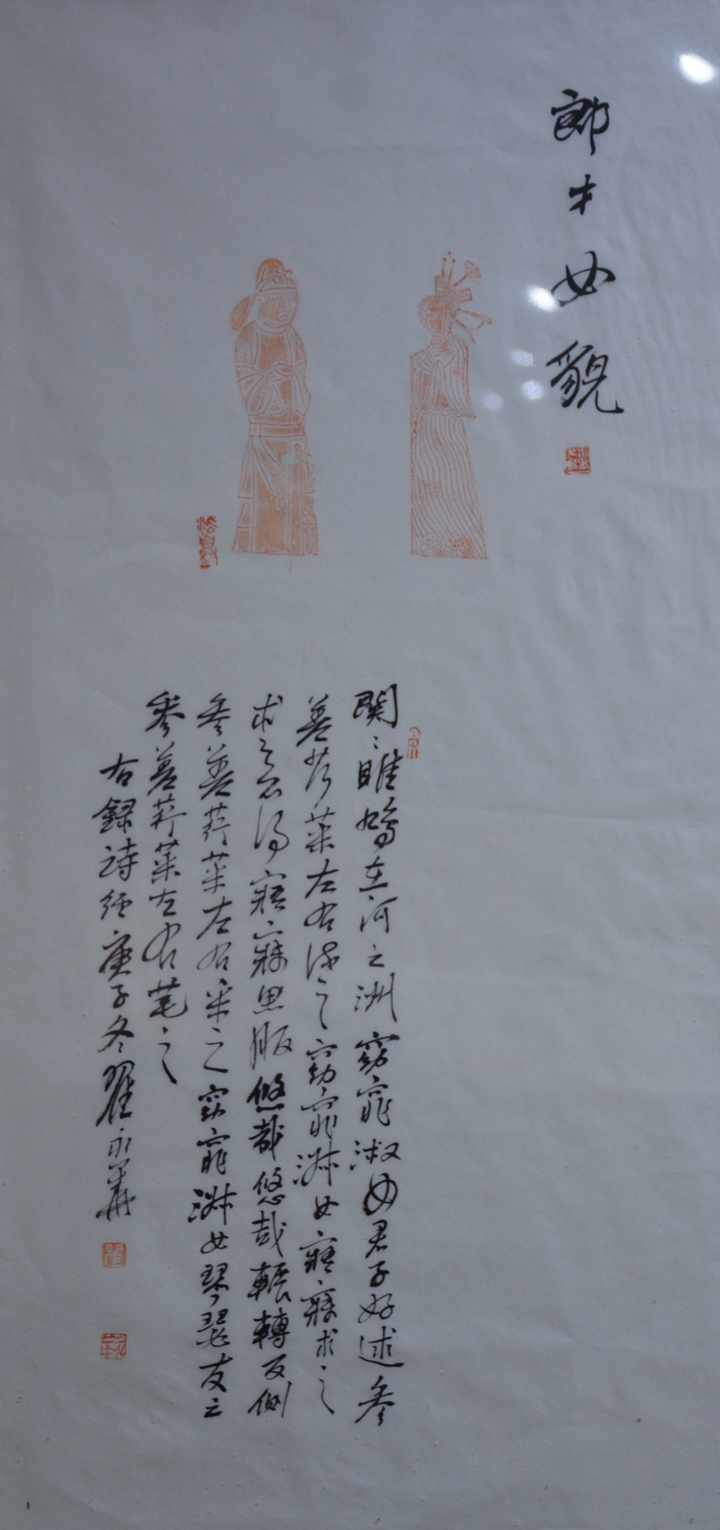 郎才女貌
關〻雎鳩在河之洲窈窕淑女君子好逑參
差荇菜左右流之窈窕淑女寤寐求之
求之不得寤寐思服悠哉悠哉輾轉反側
參差荇菜左右采之窈窕淑女琴瑟友之
參差荇菜左右芼之
右錄詩經庚子冬翟永華